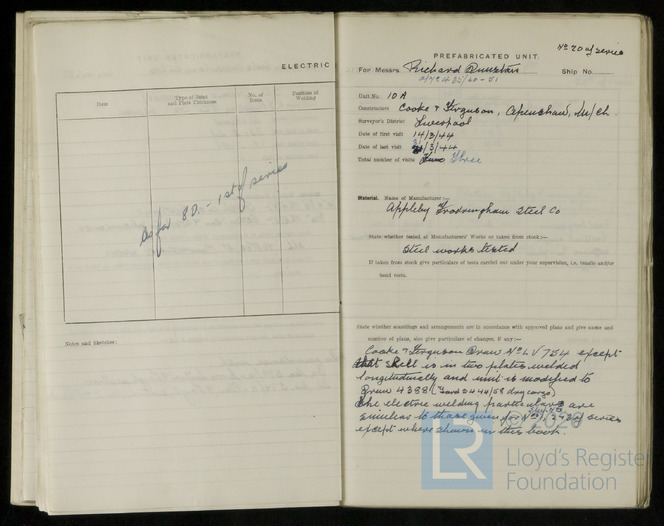 ELECTRIC
Item
Type of Joint
and Plate Thickness
No. of
Runs
Position of
Welding
As for 8D. - 1st of series
Notes and Sketches:
No 20 of series
PREFABRICATED UNIT.
For Messrs Richard Dunston Ship No.
Unit No. 10A
Constructors Cooke & Ferguson, Openshaw, M/ch.
Surveyor's District Liverpool
Date of first visit 14/3/44
Date of last visit /3/44
Total number of visits Three
Material. Name of Manufacturer:-
Appleby Frodingham Steel Co
State whether tested at Manufacturers' Works or taken from stock:-
Steel works tested
If taken from stock give particulars of tests carried out under your supervision, i.e. tensile and/or
bend tests.
State whether scantlings and arrangements are in accordance with approved plans and give name and
number of plans, also give particulars of changes, if any:-
Cooke & Ferguson Draw No LV 754 except
that shell is in two plates welded
longitudinally and unit is modified to
Draw 4388 (
The electric welding particulars are
similar to those given for of series
except where shown in this book.
© 2020
LR
Lloyd's Register
Foundation